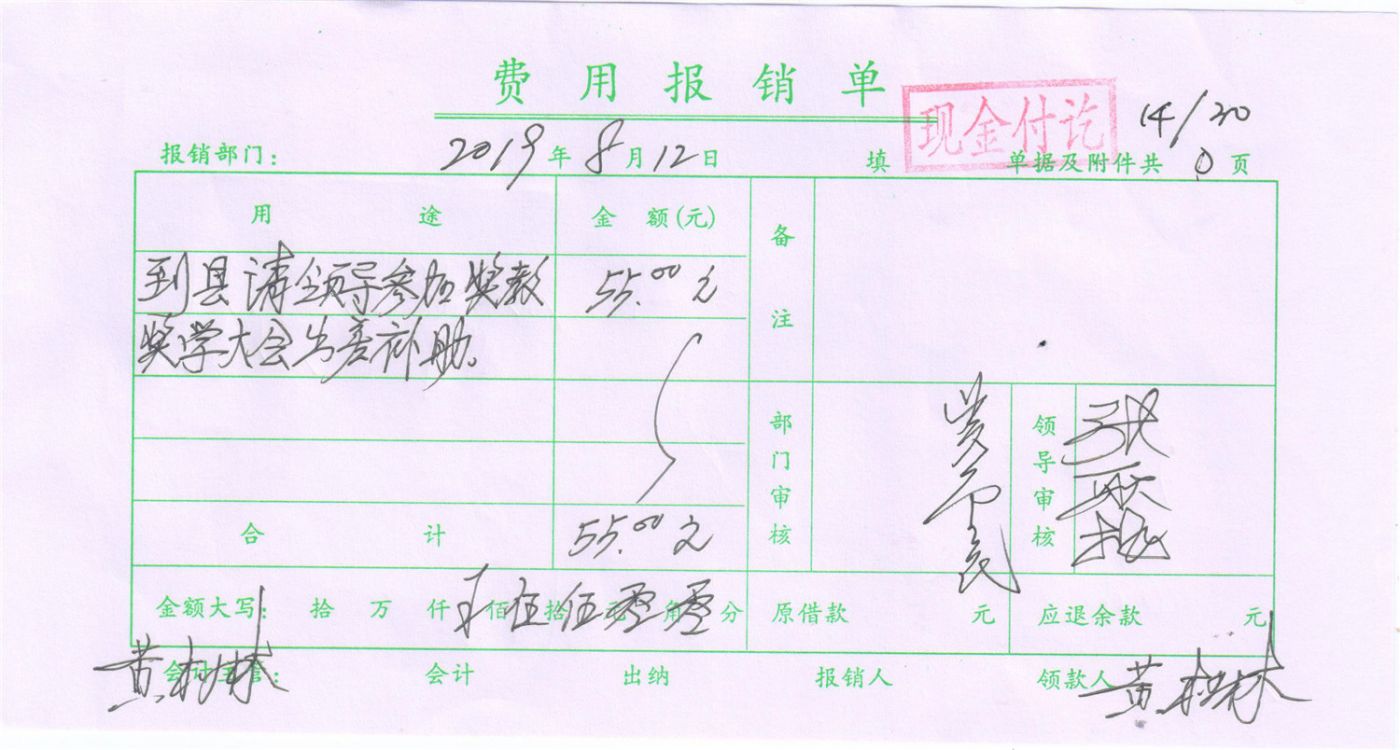 费用报销单
现金付讫
14/20
报销部门： 2019年8月12日 填 单据及附件共 0 页
用途 金额(元) 备注
到县请领导参加奖教 55.00元
奖学大会生活补助。
部门审核 领导审核
合计 55.00元
金额大写： 拾 万 仟 佰伍拾伍元零角零分 原借款 元 应退余款 元
黄树林
会计主管： 会计 出纳 报销人 领款人 黄树林